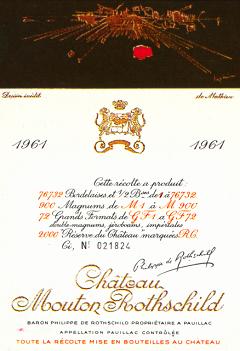 Dessin inédit de Mathieu
1961 1961
Cette récolte a produit:
76732 Bordelaises et 1/2 Bses de 1 à 76732.
900 Magnums de M 1 à M 900
72 Grands Formats de GF1 à GF72
double-magnums, jéroboams, impériales
2000 "Réserve du Château" marquées R.C.
Ci, No 021824
Philippe de Rothschild
Château
Mouton Rothschild
BARON PHILIPPE DE ROTHSCHILD PROPRIÉTAIRE A PAUILLAC
APPELLATION PAUILLAC CONTRÔLÉE
TOUTE LA RÉCOLTE MISE EN BOUTEILLES AU CHÂTEAU